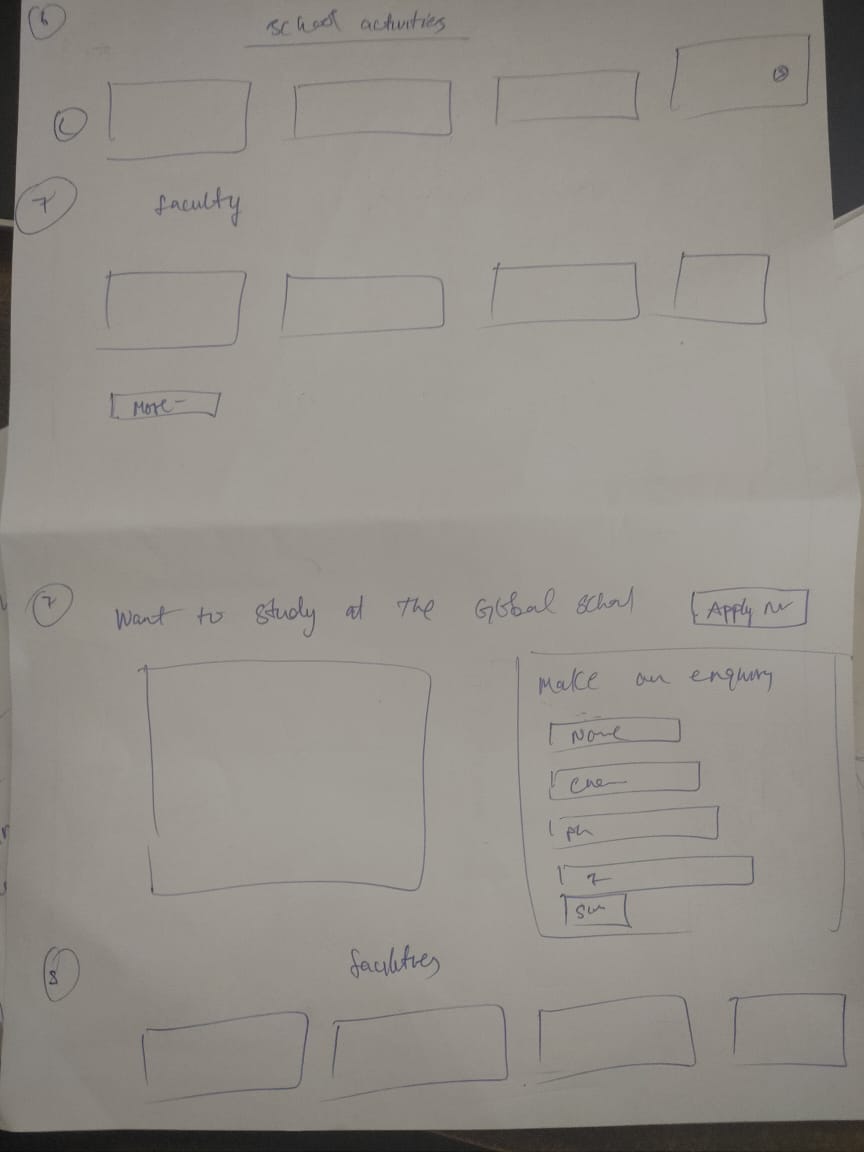 6
school activities
7
faculty
More -
7
Want to study at the Global School
Apply
Make an enquiry
Name
ph
8
facilities